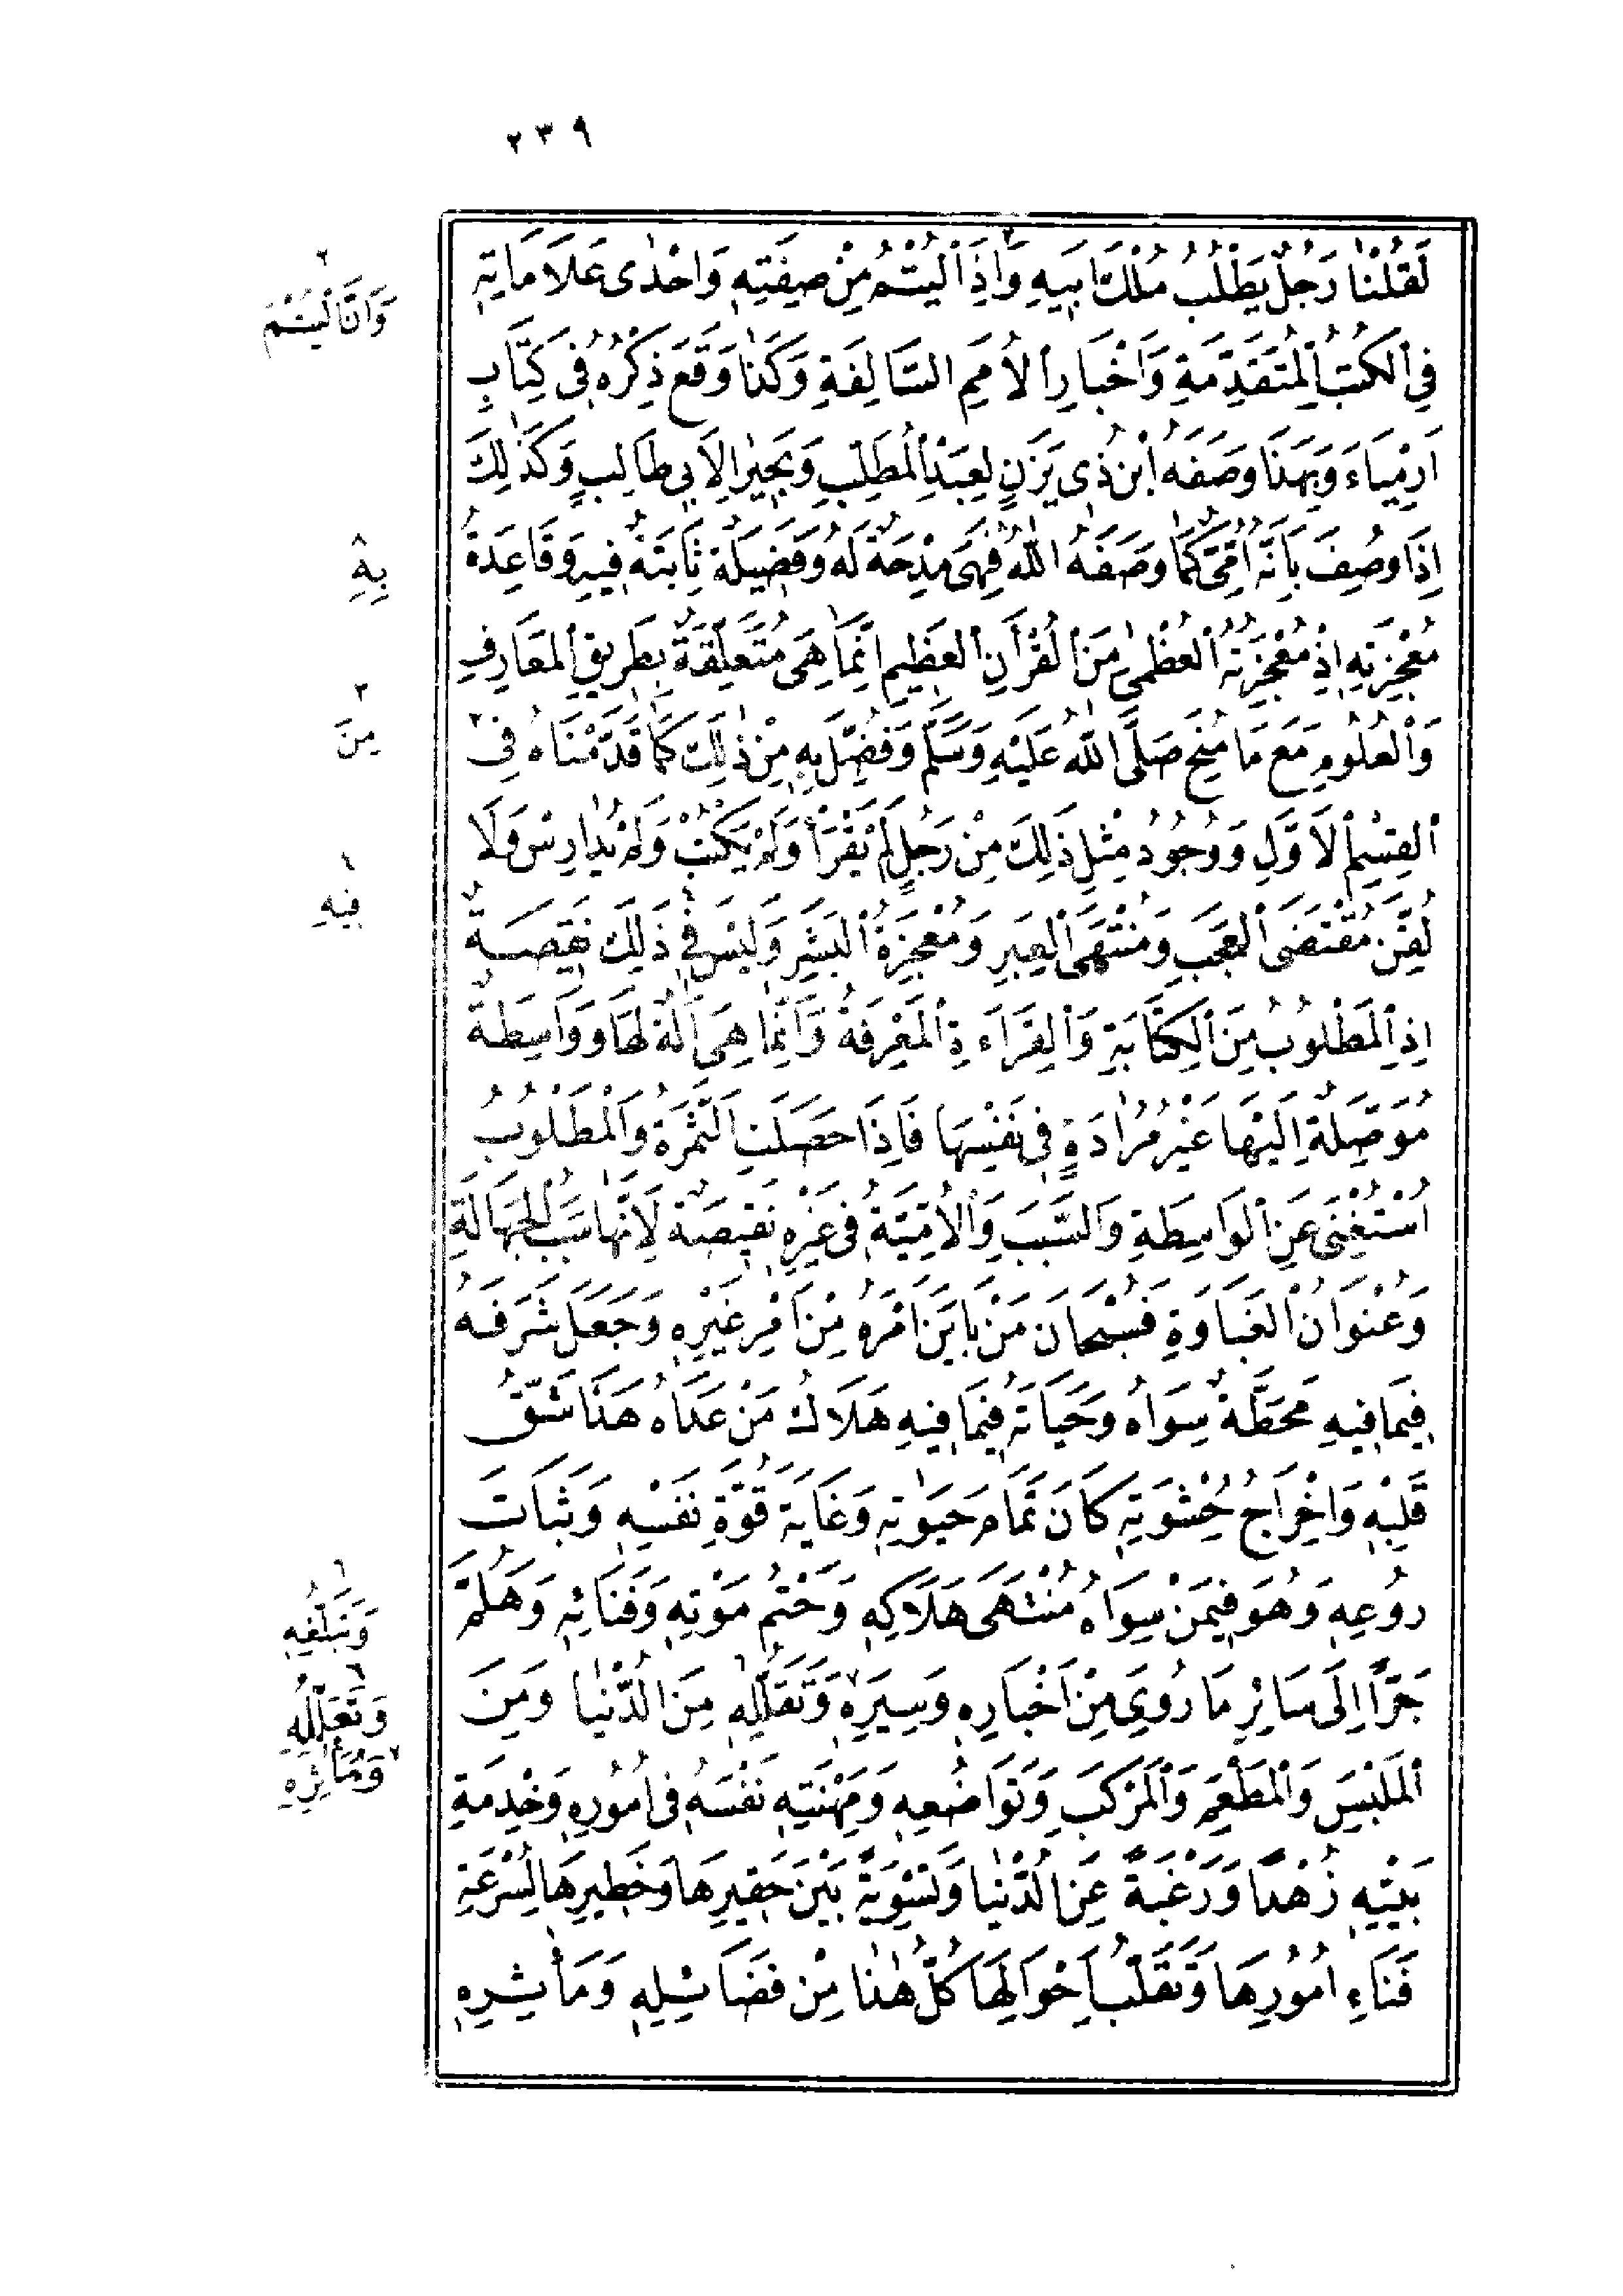 ٢٣٩
لَقُلْنَا رَجُلٌ يَطْلُبُ مُلْكَ اَبِيهِ وَاِذَا الْيُتْمُ مِنْ صِفَتِهِ وَاِحْدٰى عَلَامَاتِهِ
فِي الْكُتُبِ الْمُتَقَدِّمَةِ وَاَخْبَارِ الْاُمَمِ السَّالِفَةِ وَكَذَا وَقَعَ ذِكْرُهُ فِي كِتَابِ
اَرْمِيَاءَ وَبِهَذَا وَصَفَهُ ابْنُ ذِي يَزَنٍ لِعَبْدِ الْمُطَّلِبِ وَبَحِيرَا لِاَبِي طَالِبٍ وَكَذٰلِكَ
اِذَا وُصِفَ بِاَنَّهُ اُمِّيٌّ كَمَا وَصَفَهُ اللّٰهُ فَهِيَ مِدْحَةٌ لَهُ وَفَضِيلَةٌ ثَابِتَةٌ فِيهِ وَقَاعِدَةُ
مُعْجِزَتِهِ اِذْ مُعْجِزَتُهُ الْعُظْمٰى مِنَ الْقُرْاٰنِ الْعَظِيمِ اِنَّمَا هِيَ مُتَعَلِّقَةٌ بِطَرِيقِ الْمَعَارِفِ
وَالْعُلُومِ مَعَ مَا مُنِحَ صَلَّى اللّٰهُ عَلَيْهِ وَسَلَّمَ وَفُضِّلَ بِهِ مِنْ ذٰلِكَ كَمَا قَدَّمْنَاهُ فِي
الْقِسْمِ الْاَوَّلِ وَوُجُودُ مِثْلِ ذَلِكَ مِنْ رَجُلٍ لَمْ يَقْرَاْ وَلَمْ يَكْتُبْ وَلَمْ يُدَارِسْ وَلَا
لُقِّنَ مُقْتَضَى الْعَجَبِ وَمُنْتَهَى الْعِبَرِ وَمُعْجِزَةُ الْبَشَرِ وَلَيْسَ فِي ذَلِكَ نَقِيصَةٌ
اِذِ الْمَطْلُوبُ مِنَ الْكِتَابَةِ وَالْقِرَاءَةِ الْمَعْرِفَةُ وَاِنَّمَا هِيَ اٰلَةٌ لَهَا وَوَاسِطَةٌ
مُوَصِّلَةٌ اِلَيْهَا غَيْرُ مُرَادَةٍ فِي نَفْسِهَا فَاِذَا حَصَلَتِ الثَّمَرَةُ وَالْمَطْلُوبُ
اُسْتُغْنِيَ عَنِ الْوَاسِطَةِ وَالسَّبَبِ وَالْاُمِّيَّةُ فِي غَيْرِهِ نَقِيصَةٌ لِاَنَّهَا سَبَبُ الْجَهَالَةِ
وَعُنْوَانُ الْغَبَاوَةِ فَسُبْحَانَ مَنْ بَايَنَ اَمْرَهُ مِنْ اَمْرِ غَيْرِهِ وَجَعَلَ شَرَفَهُ
فِيمَا فِيهِ مَحَطَّةُ سِوَاهُ وَحَيَاتَهُ فِيمَا فِيهِ هَلَاكُ مَنْ عَدَاهُ هَذَا شَقُّ
قَلْبِهِ وَاِخْرَاجُ حُشْوَتِهِ كَانَ تَمَامَ حَيٰوتِهِ وَغَايَةَ قُوَّةِ نَفْسِهِ وَثَبَاتَ
رُوعِهِ وَهُوَ فِيمَنْ سِوَاهُ مُنْتَهَى هَلَاكِهِ وَحَتْمُ مَوْتِهِ وَفَنَائِهِ وَهَلُمَّ
جَرًّا اِلَى سَائِرِ مَا رُوِيَ مِنْ اَخْبَارِهِ وَسِيَرِهِ وَتَقَلُّلِهِ مِنَ الدُّنْيَا وَمِنَ
الْمَلْبَسِ وَالْمَطْعَمِ وَالْمَرْكَبِ وَتَوَاضُعِهِ وَمِهْنَتِهِ نَفْسَهُ فِي اُمُورِهِ وَخِدْمَةِ
بَيْتِهِ زُهْدًا وَرَغْبَةً عَنِ الدُّنْيَا وَتَسْوِيَةً بَيْنَ حَقِيرِهَا وَخَطِيرِهَا لِسُرْعَةِ
فَنَاءِ اُمُورِهَا وَتَقَلُّبِ اَحْوَالِهَا كُلُّ هٰذَا مِنْ فَضَائِلِهِ وَمَاٰثِرِهِ
٦
وَاَنَّ الْيُتْمَ
٨
بِهِ
٢
مِنَ
٨
فِيهِ
٦
٦
وَتَعَلُّلِهِ
٧
وَمَاٰثِرِهِ